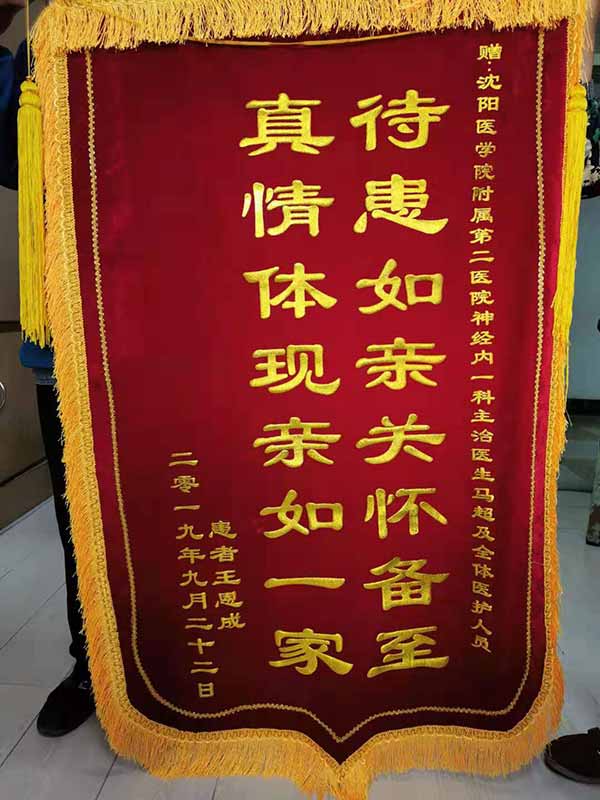 赠：沈阳医学院附属第二医院神经内一科主治医生马超及全体医护人员
待患如亲关怀备至
真情体现亲如一家
患者王恩成
二零一九年九月二十二日